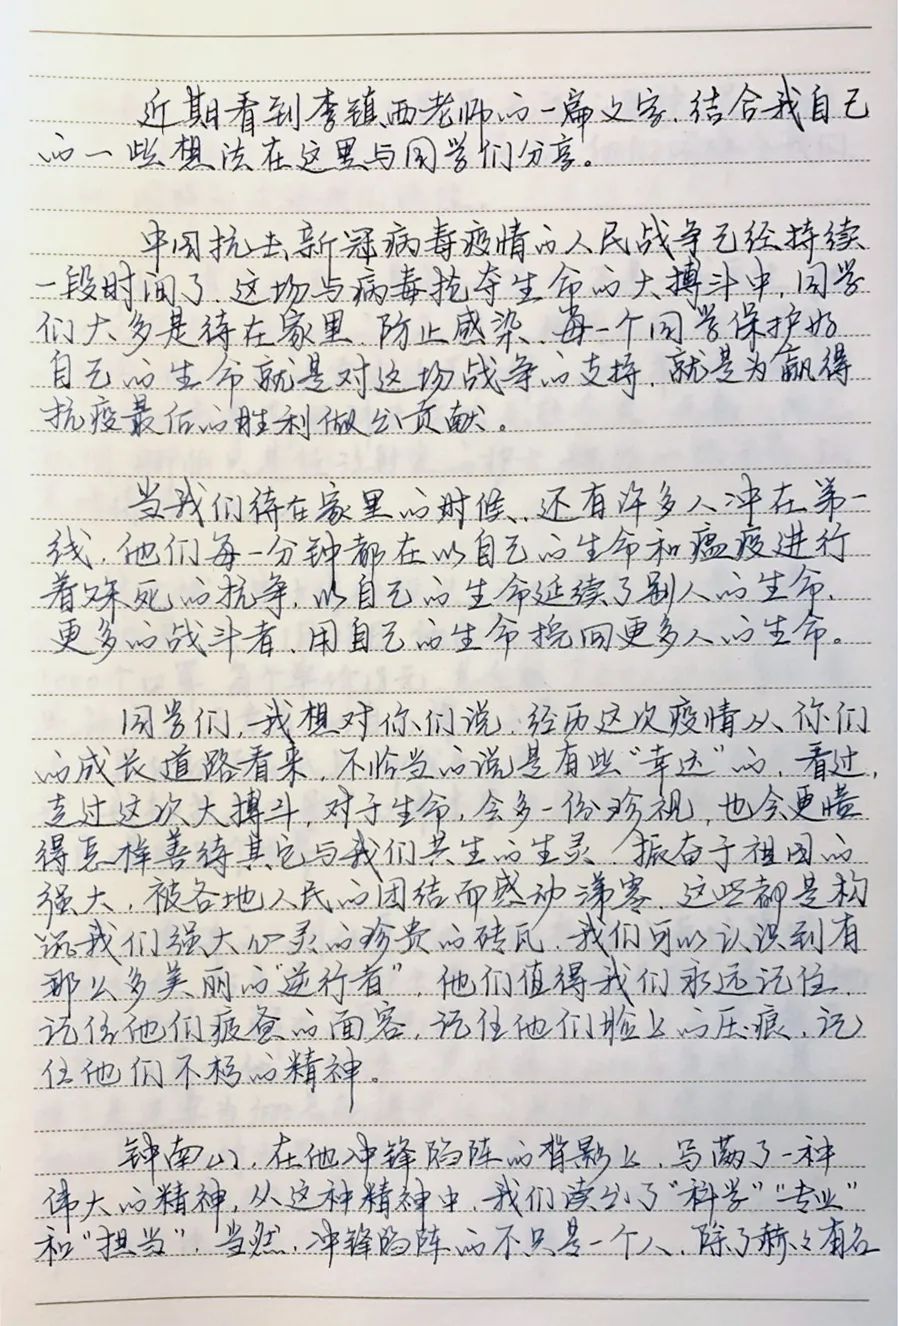 近期看到李镇西老师的一篇文字,结合我自己
的一些想法在这里与同学们分享。
中国抗击新冠病毒疫情的人民战争已经持续
一段时间了,这场与病毒抢夺生命的大搏斗中,同学
们大多是待在家里,防止感染,每一个同学保护好
自己的生命就是对这场战争的支持,就是为赢得
抗疫最后的胜利做出贡献。
当我们待在家里的时候,还有许多人冲在第一
线,他们每一分钟都在以自己的生命和瘟疫进行
着殊死的抗争,以自己的生命延续了别人的生命,
更多的战斗者,用自己的生命挽回更多人的生命。
同学们,我想对你们说,经历这次疫情从你们
的成长道路看来,不恰当的说是有些“幸运”的,看过,
走过这次大搏斗,对于生命,会多一份珍视,也会更懂
得怎样善待其它与我们共生的生灵,振奋于祖国的
强大,被各地人民的团结而感动涕零,这些都是构
筑我们强大心灵的珍贵的砖瓦,我们可以认识到有
那么多美丽的“逆行者”,他们值得我们永远记住,
记住他们疲惫的面容,记住他们脸上的压痕,记
住他们不朽的精神。
钟南山,在他冲锋陷阵的背影上,写满了一种
伟大的精神,从这种精神中,我们读出了“科学”“专业”
和“担当”,当然,冲锋陷阵的不只是一个人,除了赫々有名